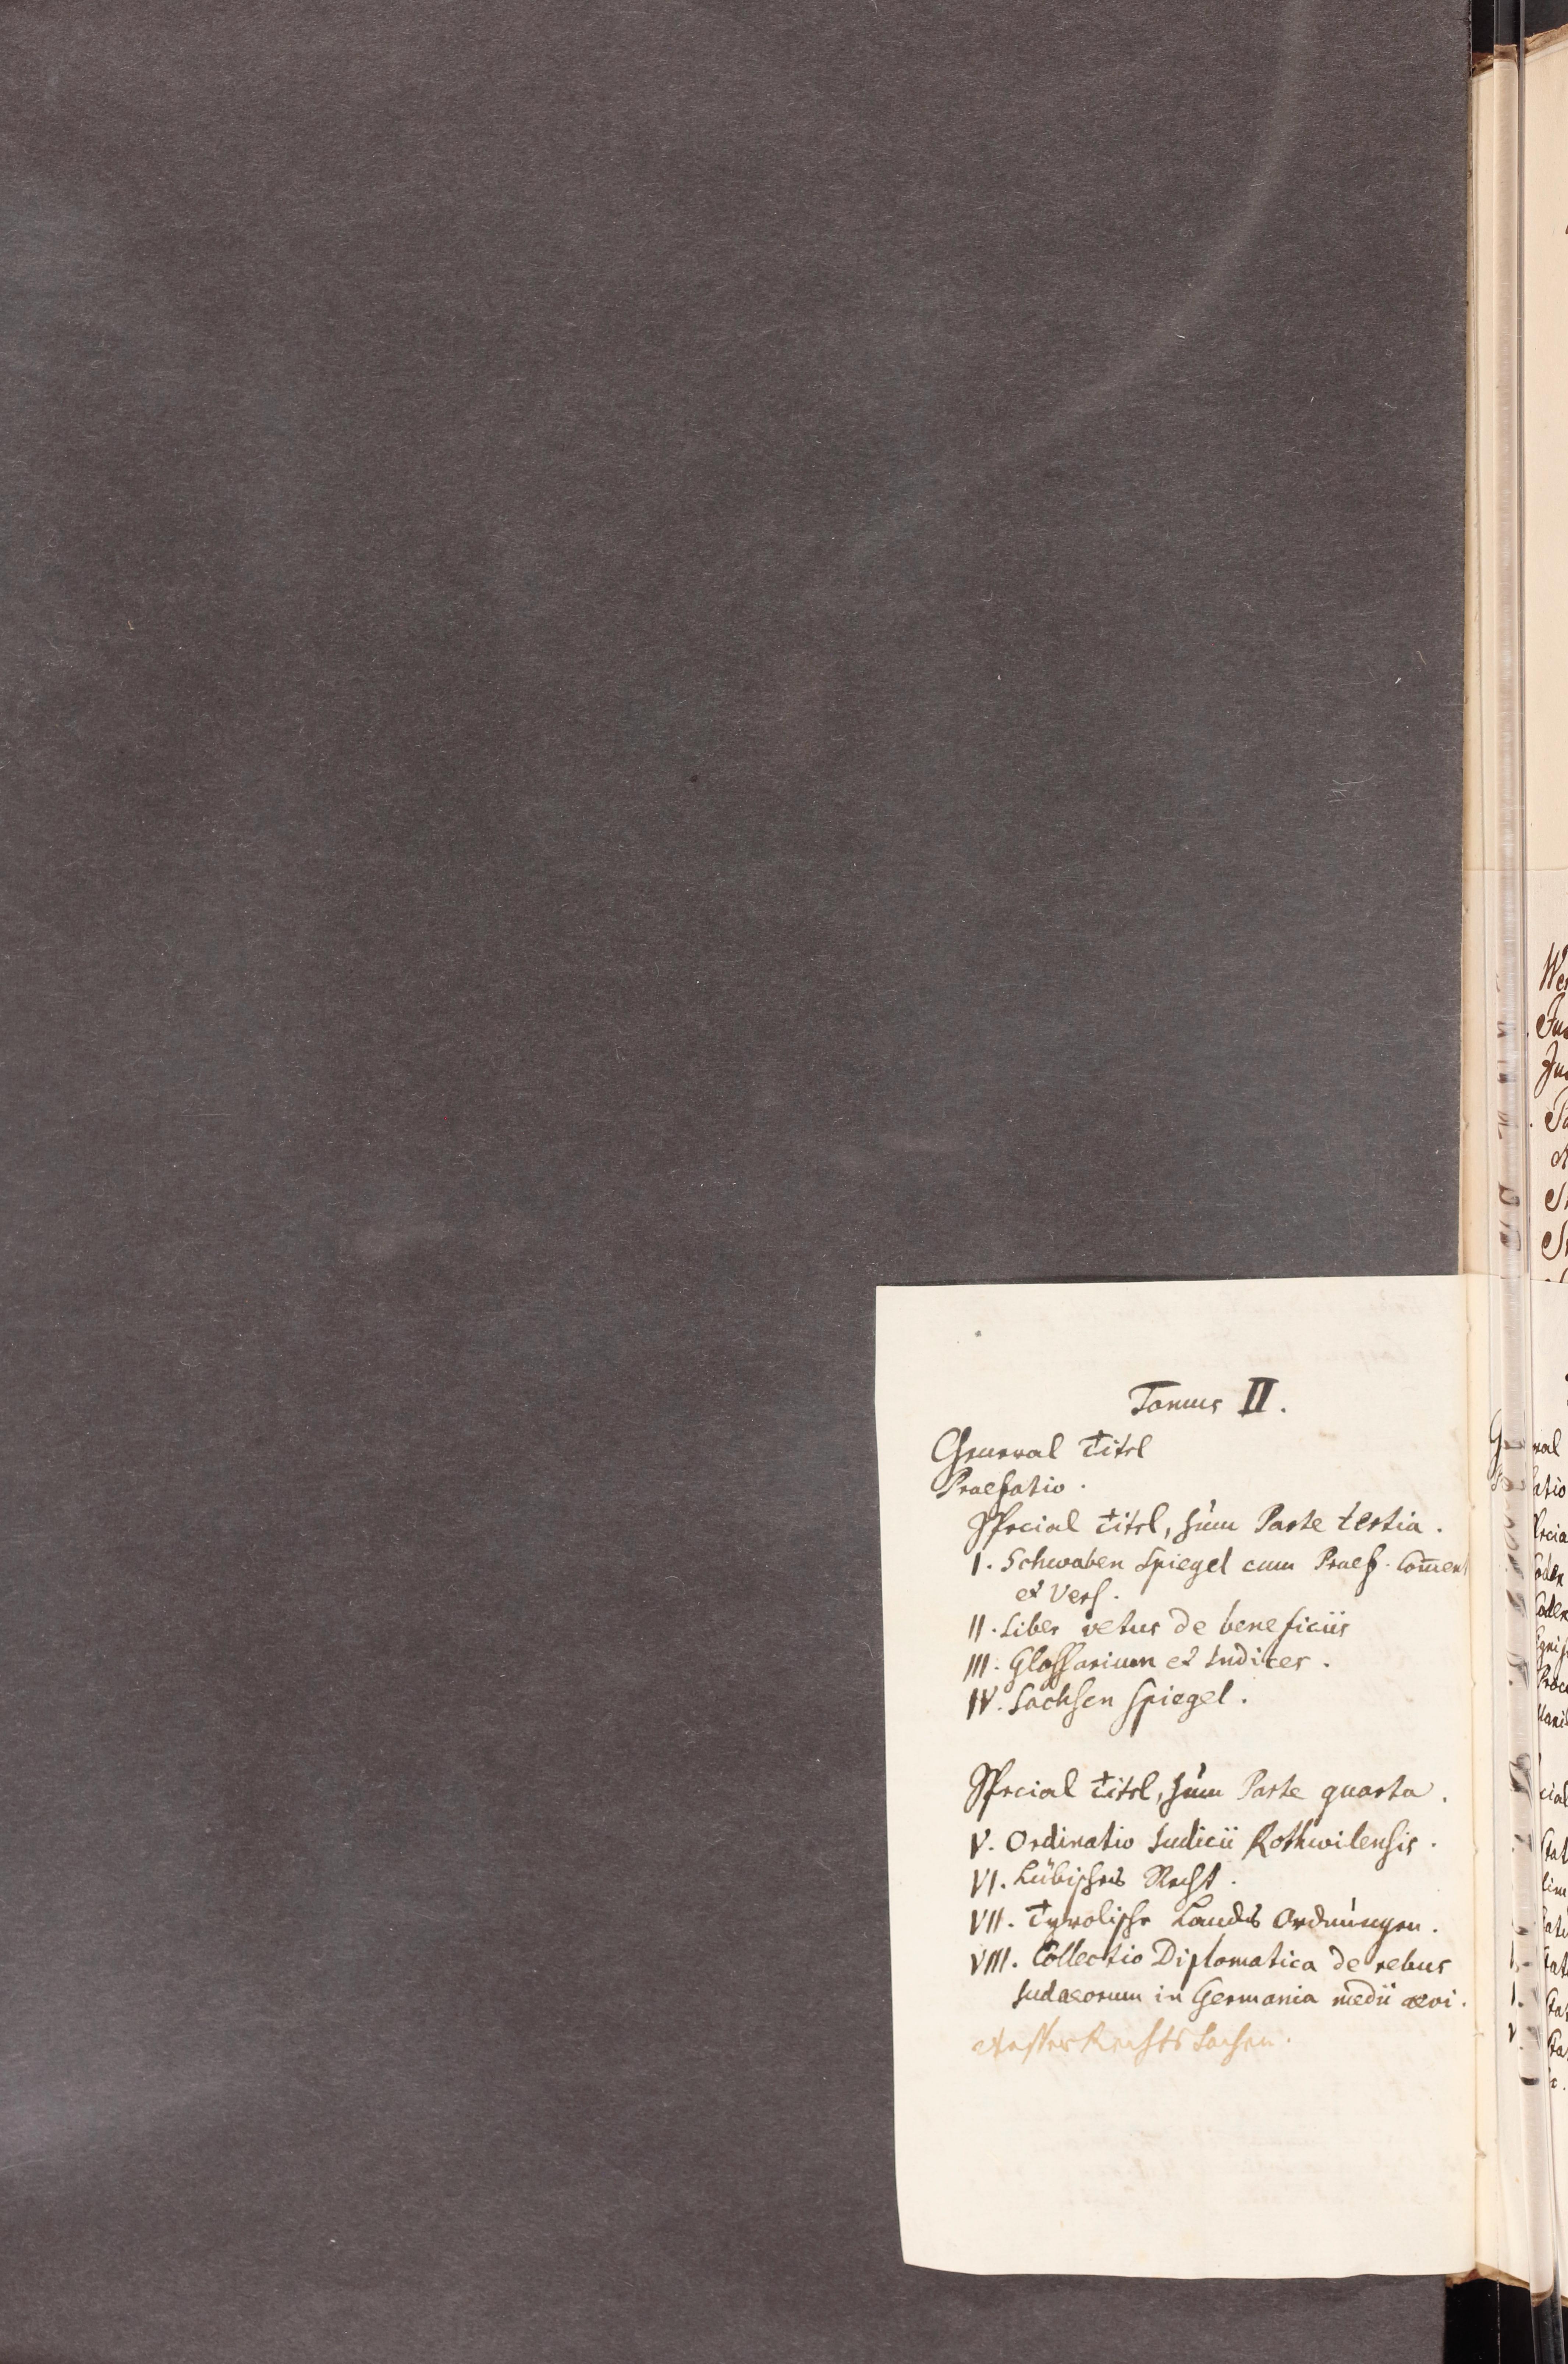 Tomus II.
General Titel
Praefatio.
Special Titel, zum Parte tertia.
I. Schwaben Spiegel cum Praef. Com̅ent
et Vers.
II. Liber vetus de beneficiis
III. Glossarium et Indices.
IV. Sachsen Spiegel.
Special Titel, zum Parte quarta.
V. Ordinatio Judicii Rothwilensis.
VI. Lübisches Recht.
VII. Tyrolische Landes Ordnungen.
VIII. Collectio Diplomatica de rebus
Judaeorum in Germania medii aevi.